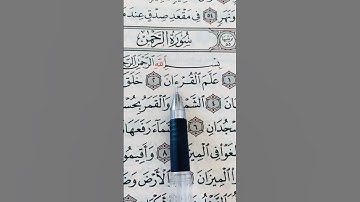 وَنَهَرٍ ۝٥٤ فِي مَقْعَدِ صِدْقٍ عِندَ
سُورَةُ الرَّحْمَٰنِ
بِسْمِ اللَّهِ الرَّحْمَٰنِ
عَلَّمَ الْقُرْءَانَ ۝٢ خَلَقَ
الشَّمْسُ وَالْقَمَرُ بِحُسْ
جُدَانِ ۝٦ وَالسَّمَاءَ رَفَعَهَا
فِي الْمِيزَانِ ۝٨ وَأَقِيمُو
الْمِيزَانَ ۝٩ وَالْأَرْضَ وَضَ